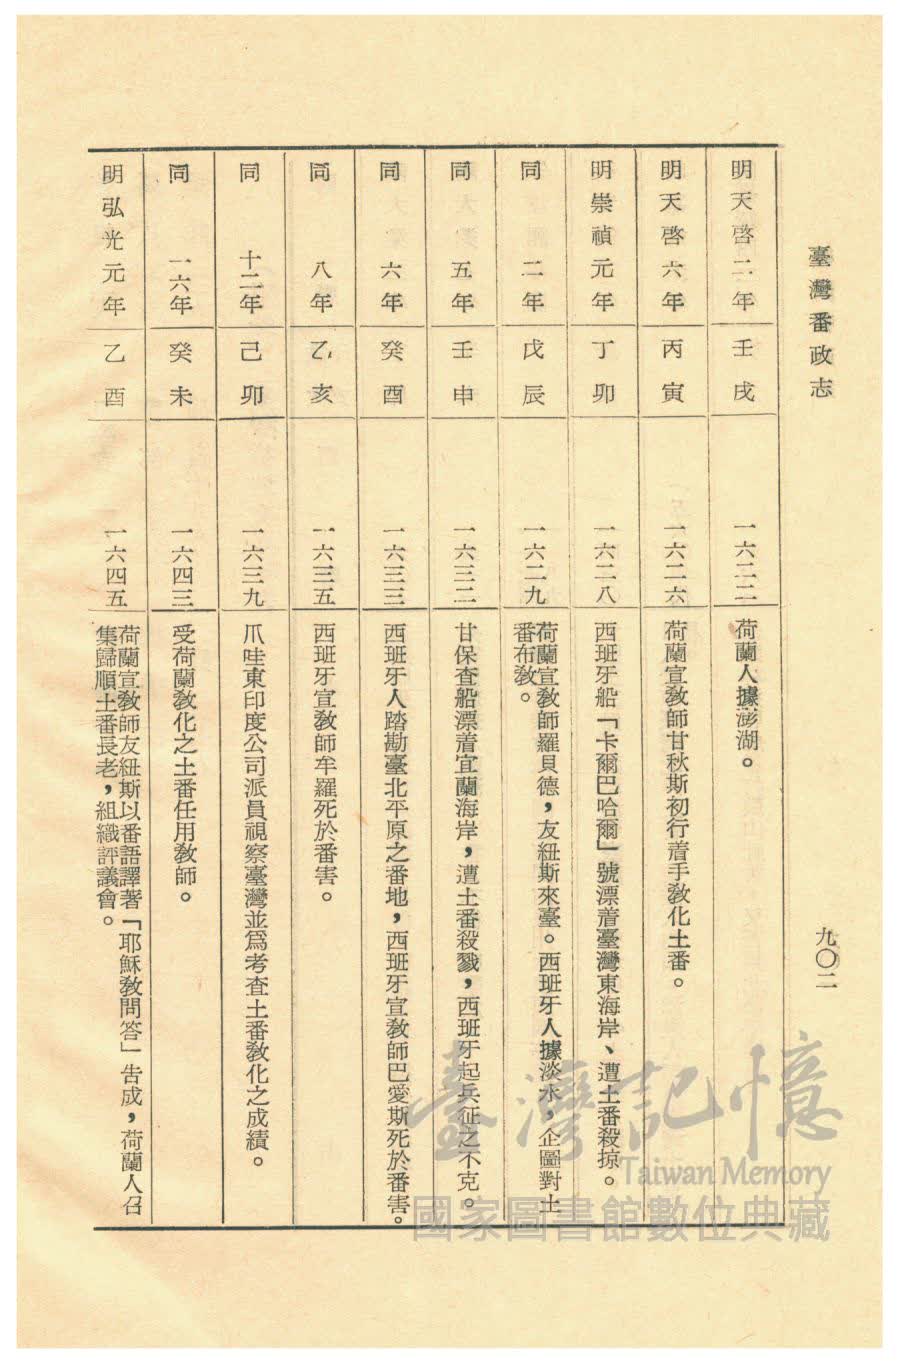 臺灣番政志
九〇二
明天啓二年 壬戌 一六二二 荷蘭人據澎湖。
明天啓六年 丙寅 一六二六 荷蘭宣敎師甘秋斯初行着手敎化土番。
明崇禎元年 丁卯 一六二八 西班牙船「卡爾巴哈爾」號漂着臺灣東海岸、遭土番殺掠。
同 二年 戊辰 一六二九 荷蘭宣敎師羅貝德，友紐斯來臺。西班牙人據淡水，企圖對土
番布敎。
同 五年 壬申 一六三二 甘保查船漂着宜蘭海岸，遭土番殺戮，西班牙起兵征之不克。
同 六年 癸酉 一六三三 西班牙人踏勘臺北平原之番地，西班牙宣敎師巴愛斯死於番害。
同 八年 乙亥 一六三五 西班牙宣敎師牟羅死於番害。
同 十二年 己卯 一六三九 爪哇東印度公司派員視察臺灣並爲考査土番敎化之成績。
同 一六年 癸未 一六四三 受荷蘭敎化之土番任用敎師。
明弘光元年 乙酉 一六四五 荷蘭宣敎師友紐斯以番語譯著「耶穌敎問答」告成，荷蘭人召
集歸順土番長老，組織評議會。
臺灣記憶
Taiwan Memory
國家圖書館數位典藏